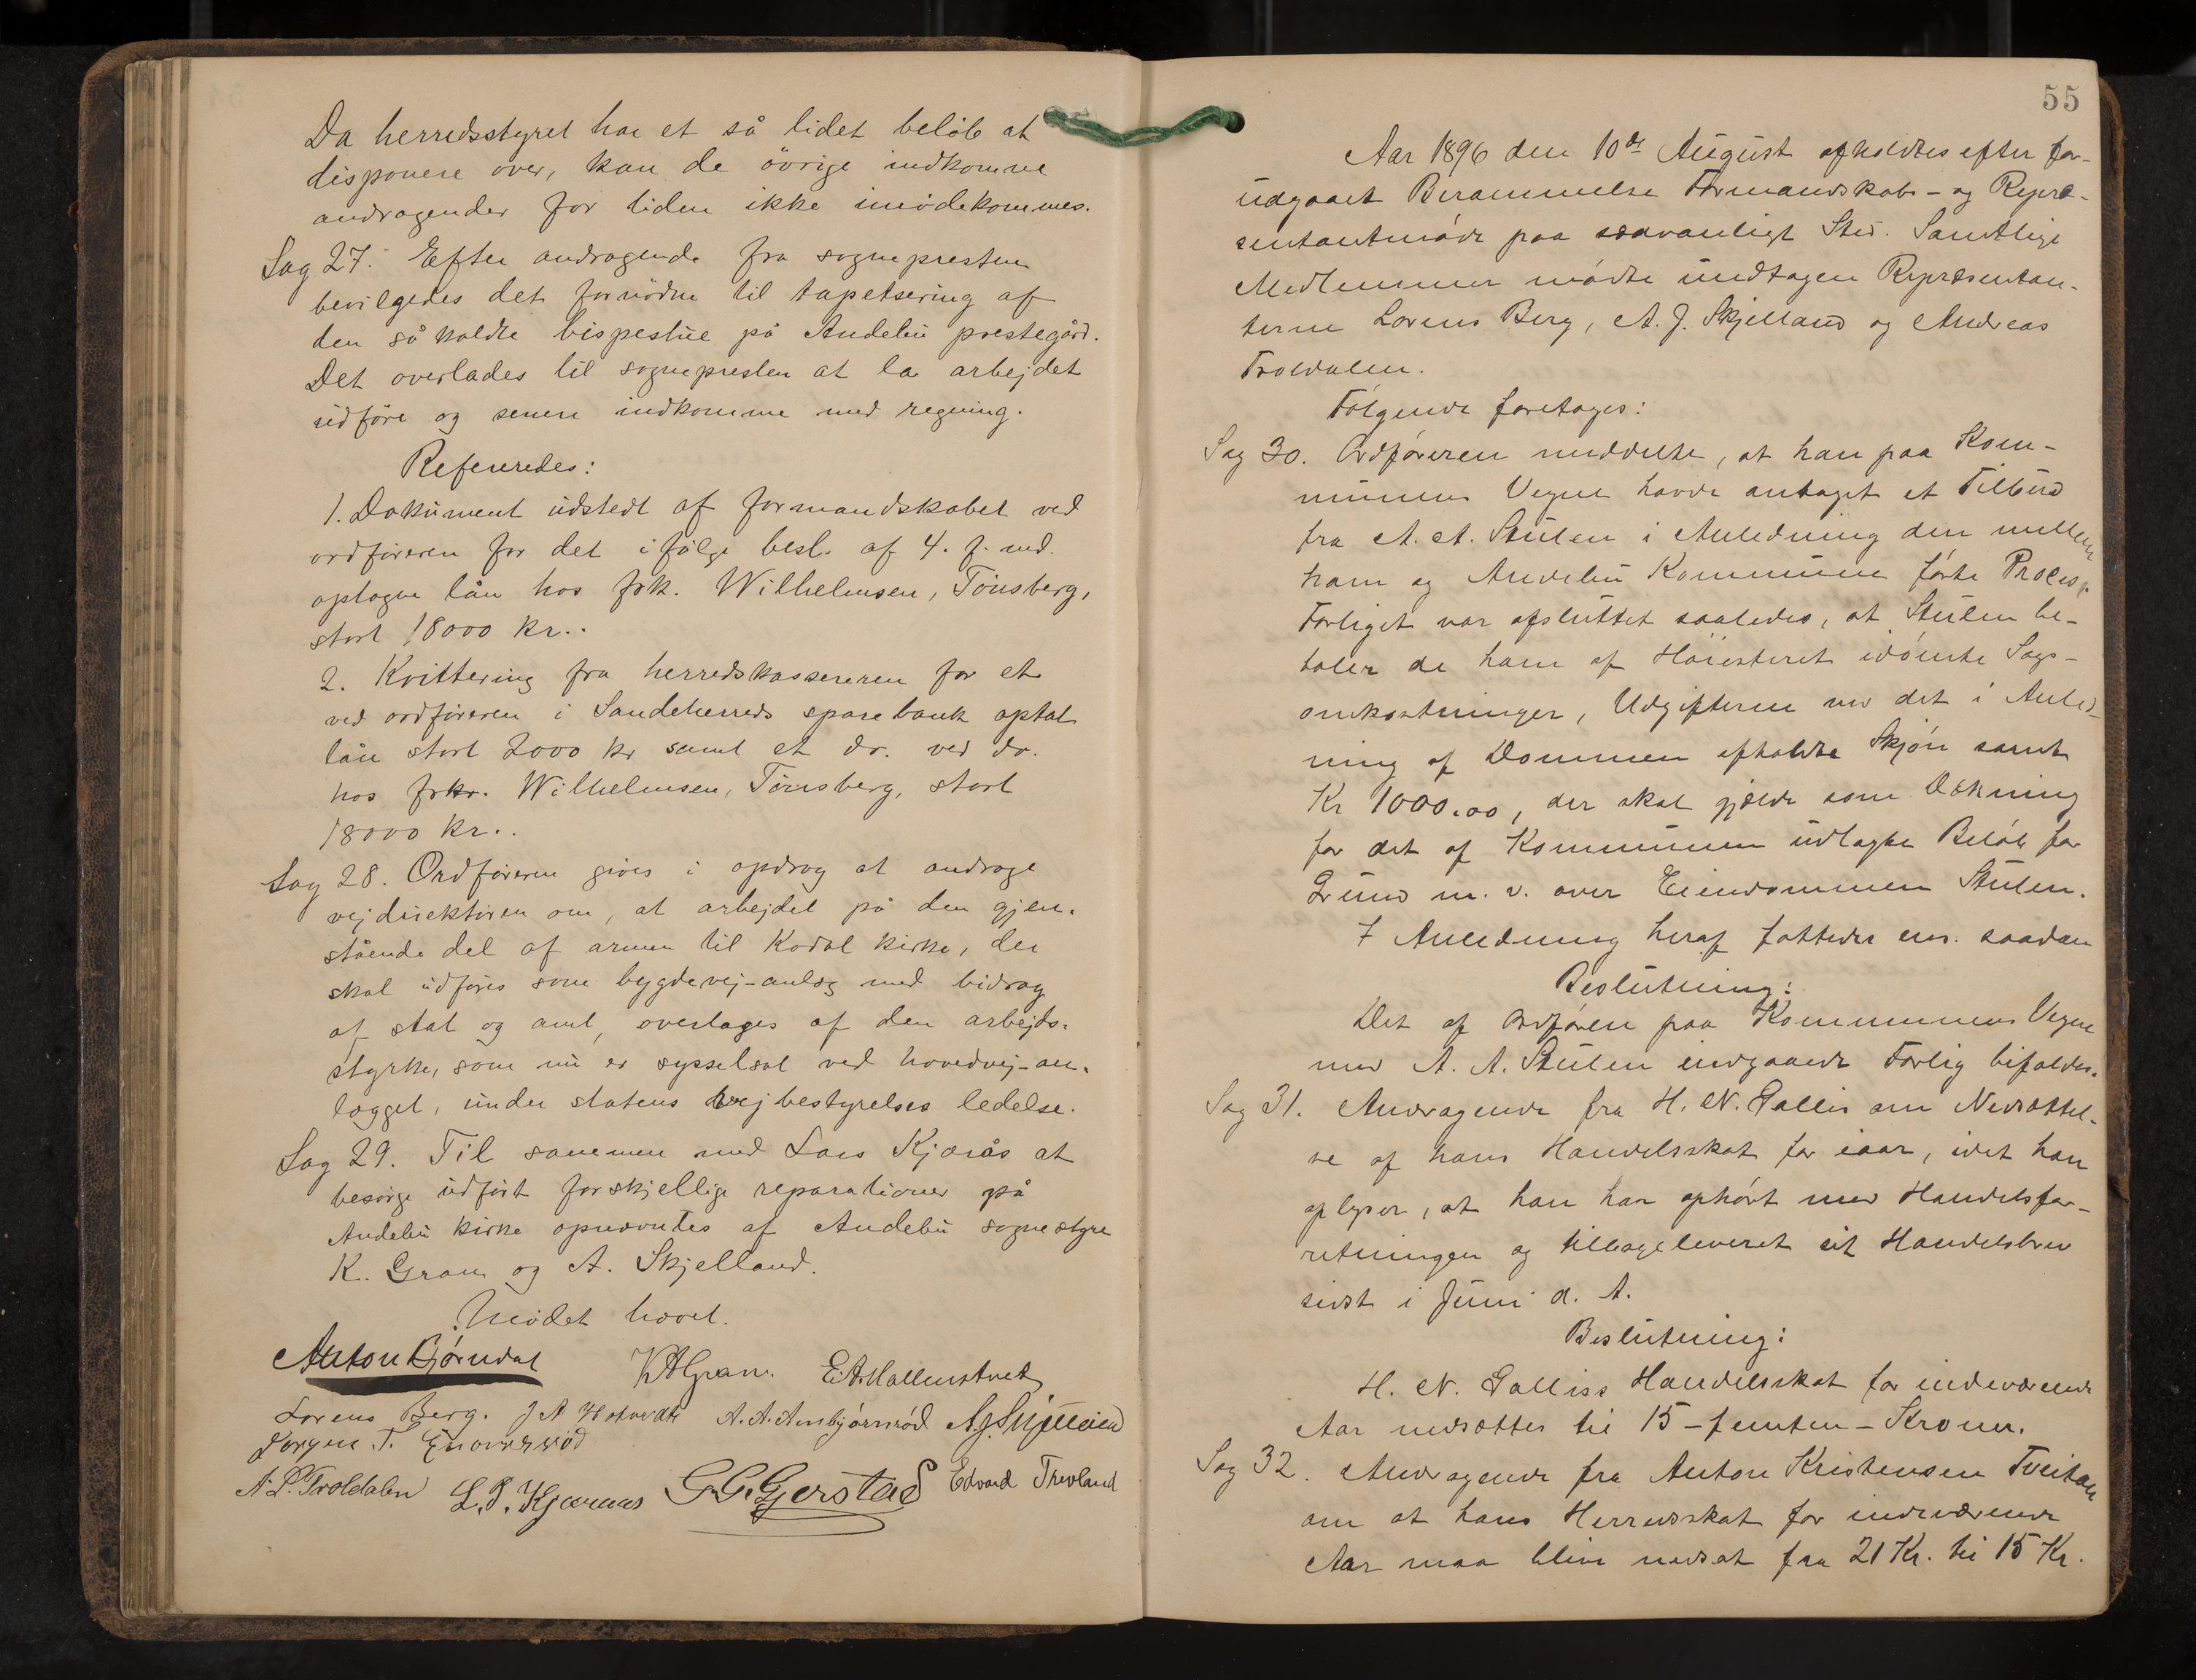 Da herredsstyret har et så lidet beløb at
disponere over, kan de øvrige indkomne
andragender for tiden ikke imødekommes.
Sag 27. Efter andragende fra sognepresten
bevilgedes det fornødne til tapetsering af
den så kaldte bispestue på Andebu prestegård.
Det overlades til sognepresten at la arbejdet
udføre og senere indkomme med regning.
Refereredes:
1. Dokument udstedt af formandskabet ved
ordføreren for det ifølge besl. af 4. f. md.
optagne lån hos frk. Wilhelmsen, Tønsberg,
stort 18000 kr..
2. Kvittering fra herredskassereren for et
ved ordføreren i Sandeherreds sparebank optat
lån stort 2000 kr samt et do. ved do.
hos frkr. Wilhelmsen, Tønsberg, stort
18000 kr..
Sag 28. Ordføreren gives i opdrag at andrage
vejdirektøren om, at arbejdet på den gjen-
stående del af armen til Kodal kirke, der
skal udføres som bygdevej-anlæg med bidrag
af stat og amt, overtages af den arbejds-
styrke, som nu er sysselsat ved hovedvej-an-
lægget, under statens vejbestyrelses ledelse.
Sag 29. Til sammen med Lars Kjærås at
besørge udført forskjellige reparationer på
Andebu kirke opnævntes af Andebu sognestyre
K. Gran og A. Skjelland.
Mødet hævet.
Anton Bjørndal K A Gran. E. A. Møllenstvet
Lorens Berg. J A A. A. Ambjørnrød A. J. Skjelland
Jørgen T.
A. L. Troldalen L. P. Kjæraas G. G. Gjerstad Edvard Trevland
55
Aar 1896 den 10de August afholdtes efter for-
udgaaet Berammelse Formandskabs- og Repræ-
sentantmøde paa sædvanligt Sted. Samtlige
Medlemmer mødte undtagen Repræsentan-
terne Lorens Berg, A. J. Skjelland og Andreas
Troldalen.
Følgende foretages:
Sag 30. Ordføreren meddelte, at han paa Kom-
munens Vegne havde antaget et Tilbud
fra A. A. Stulen i Anledning den mellem
ham og Andebu Kommune førte Proces.
Forliget var afsluttet saaledes, at Stulen be-
taler de ham af Høiesteret idømte Sags-
omkostninger, Udgifterne ved det i Anled-
ning af Dommen afholdte Skjøn samt
Kr 1000.00, der skal gjælde som Dækning
for det af Kommunen udlagte Beløb for
Grund m. v. over Eiendommen Stulen.
I Anledning heraf fattedes ens. saadan
Beslutning:
Det af Ordføren paa Kommunens Vegne
med A. A. Stulen indgaaede Forlig bifaldes.
Sag 31. Andragende fra H. N. Gallis om Nedsættel-
se af hans Handelsskat for iaar, idet han
oplyser, at han har ophørt med Handelsfor-
retningen og tilbageleveret sit Handelsbrev
sidst i Juni d. A.
Beslutning:
H. N. Galliss Handelsskat for indeværende
Aar nedsættes til 15 - femten - Kroner.
Sag 32. Andragende fra Anton Kristensen Tveitan
om at hans Herredsskat for indeværende
Aar maa blive nedsat fra 21 Kr. til 15 Kr.